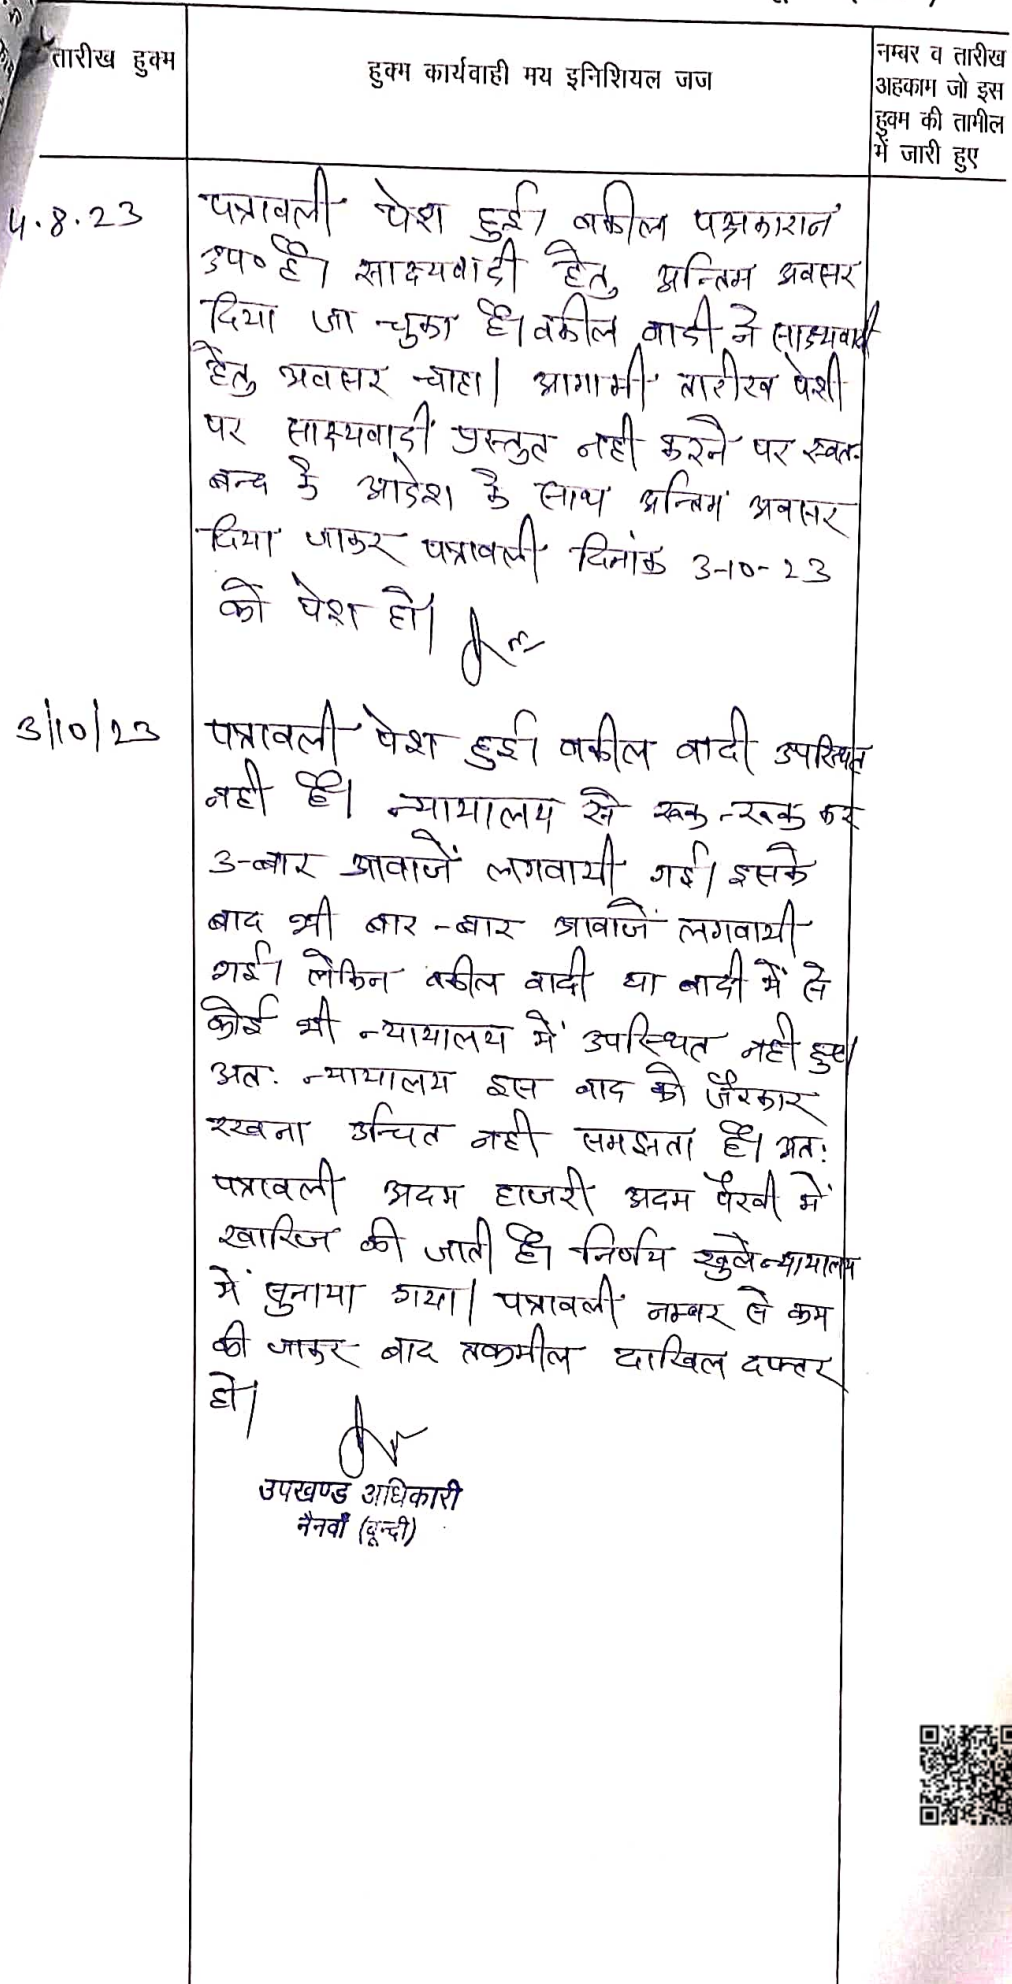 तारीख हुक्म
हुक्म कार्यवाही मय इनिशियल जज
नम्बर व तारीख
अहकाम जो इस
हुक्म की तामील
में जारी हुए
4.8.23
पत्रावली पेश हुई। वकील पक्षकारान
उप० है। साक्ष्यवादी हेतु अन्तिम अवसर
दिया जा चुका है। वकील वादी ने साक्ष्यवादी
हेतु अवसर चाहा। आगामी तारीख पेशी
पर साक्ष्यवादी प्रस्तुत नही करने पर स्वतः
बन्द के आदेश के साथ अन्तिम अवसर
दिया जाकर पत्रावली दिनांक 3-10-23
को पेश हो।
3/10/23
पत्रावली पेश हुई। वकील वादी उपस्थित
नही है। न्यायालय से रूक-रूक कर
3-बार आवाजें लगवायी गई। इसके
बाद भी बार-बार आवाजें लगवायी
गई। लेकिन वकील वादी या वादी में से
कोई भी न्यायालय में उपस्थित नही हुए।
अतः न्यायालय इस वाद को जैरकार
रखना उचित नही समझता है। अतः
पत्रावली अदम हाजरी अदम पैरवी में
खारिज की जाती है। निर्णय खुले न्यायालय
में सुनाया गया। पत्रावली नम्बर से कम
की जाकर बाद तकमील दाखिल दफ्तर
हो।
उपखण्ड अधिकारी
नैनवाँ (बून्दी)